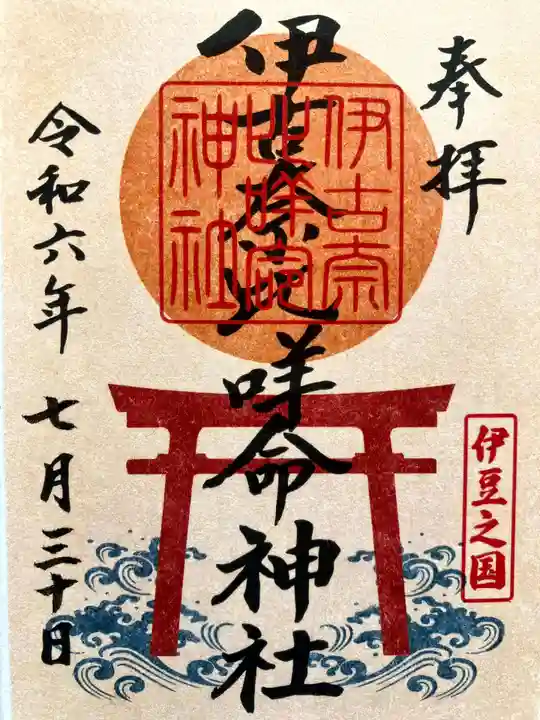 奉拝
伊豆之国
伊古奈比咩命神社
伊古奈
比咩命
神社
令和六年 七月三十日